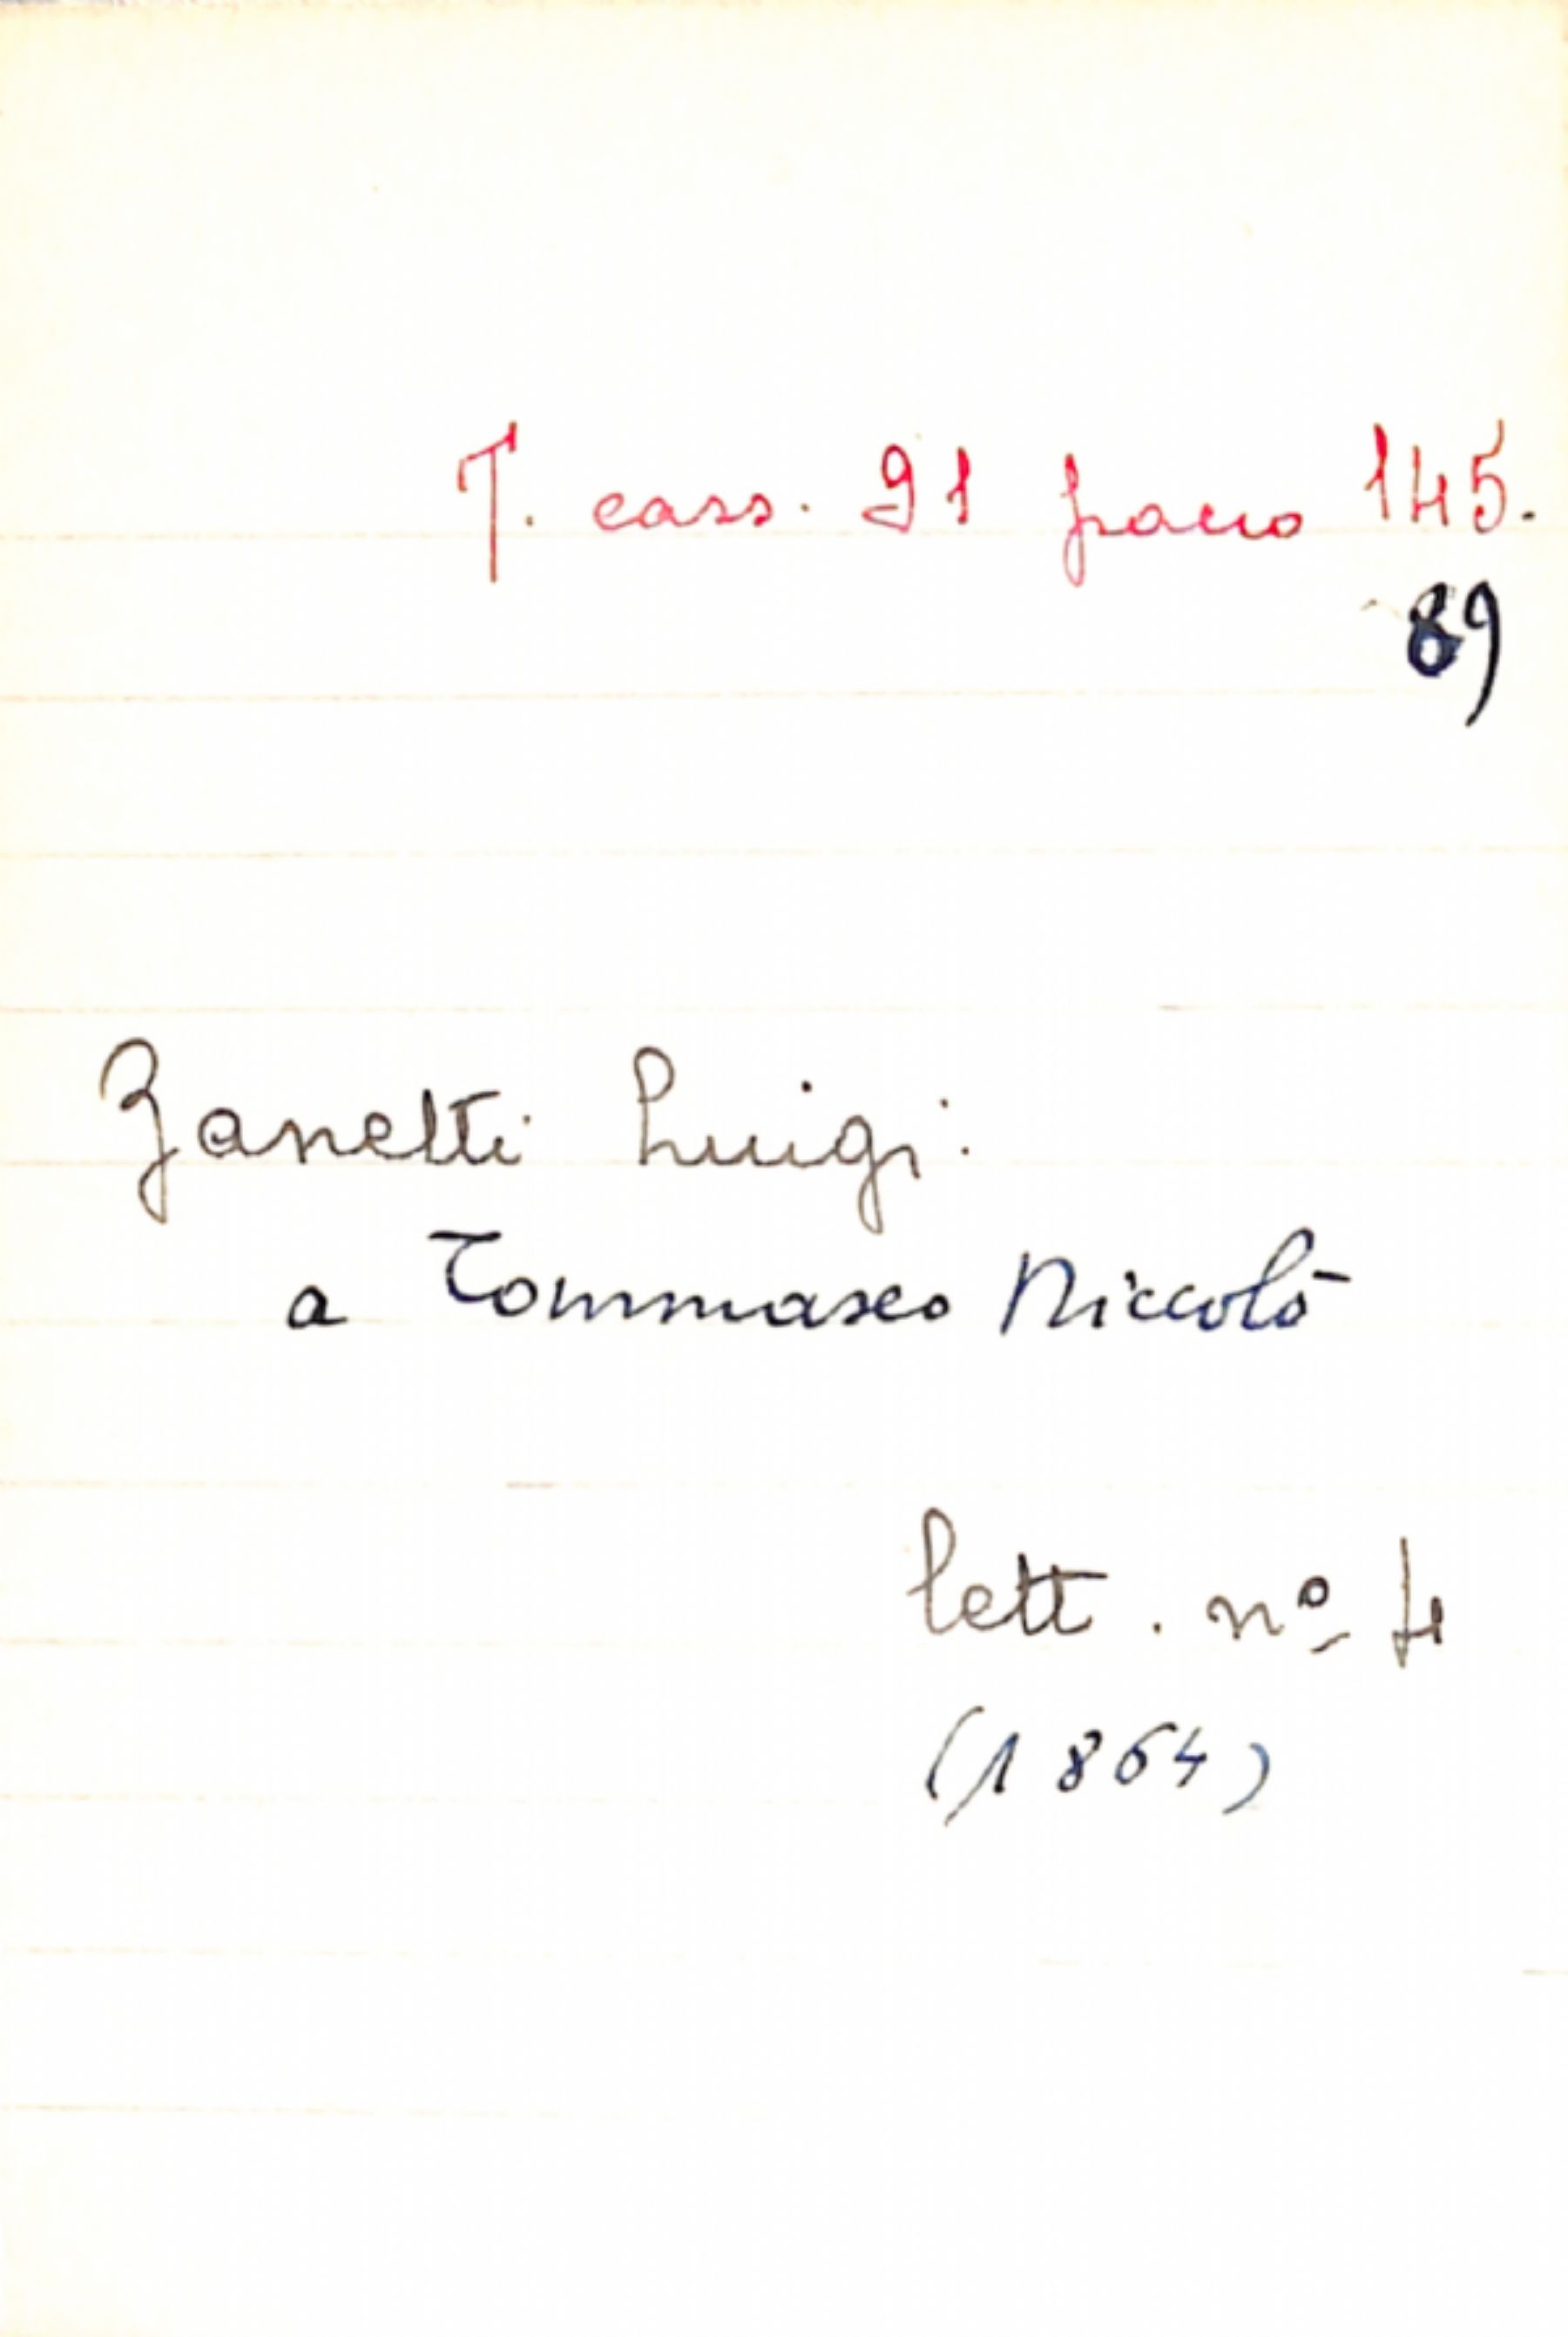 T. cass. 91 pacco 145.
89
Zanetti Luigi.
a Tommaseo Niccolò
lett. nº 4
(1864)